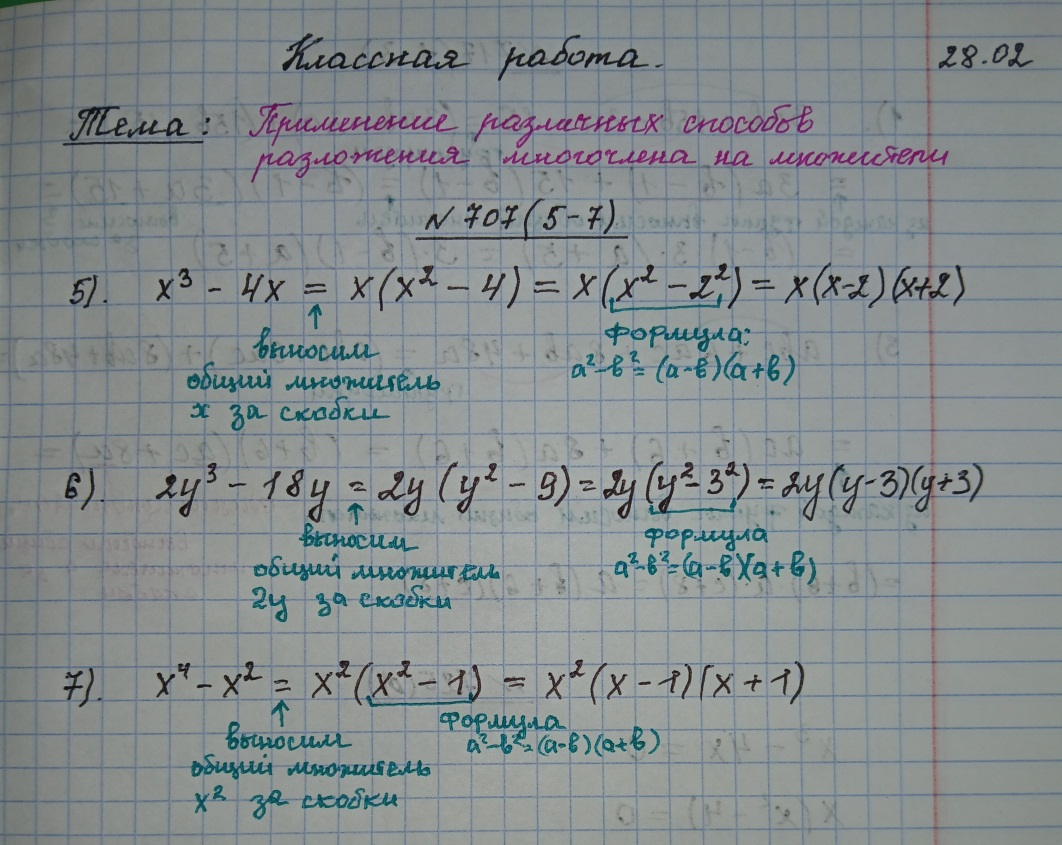 Классная работа. 28.02
Тема: Применение различных способов
разложения многочлена на множители
№707(5-7)
5). x³ - 4x = x(x² - 4) = x(x² - 2²) = x(x-2)(x+2)
выносим
общий множитель
x за скобки
формула:
a²-b²=(a-b)(a+b)
6). 2y³ - 18y = 2y(y² - 9) = 2y(y² - 3²) = 2y(y-3)(y+3)
выносим
общий множитель
2y за скобки
формула
a²-b²=(a-b)(a+b)
7). x⁴ - x² = x²(x² - 1) = x²(x - 1)(x + 1)
выносим
общий множитель
x² за скобки
формула
a²-b²=(a-b)(a+b)